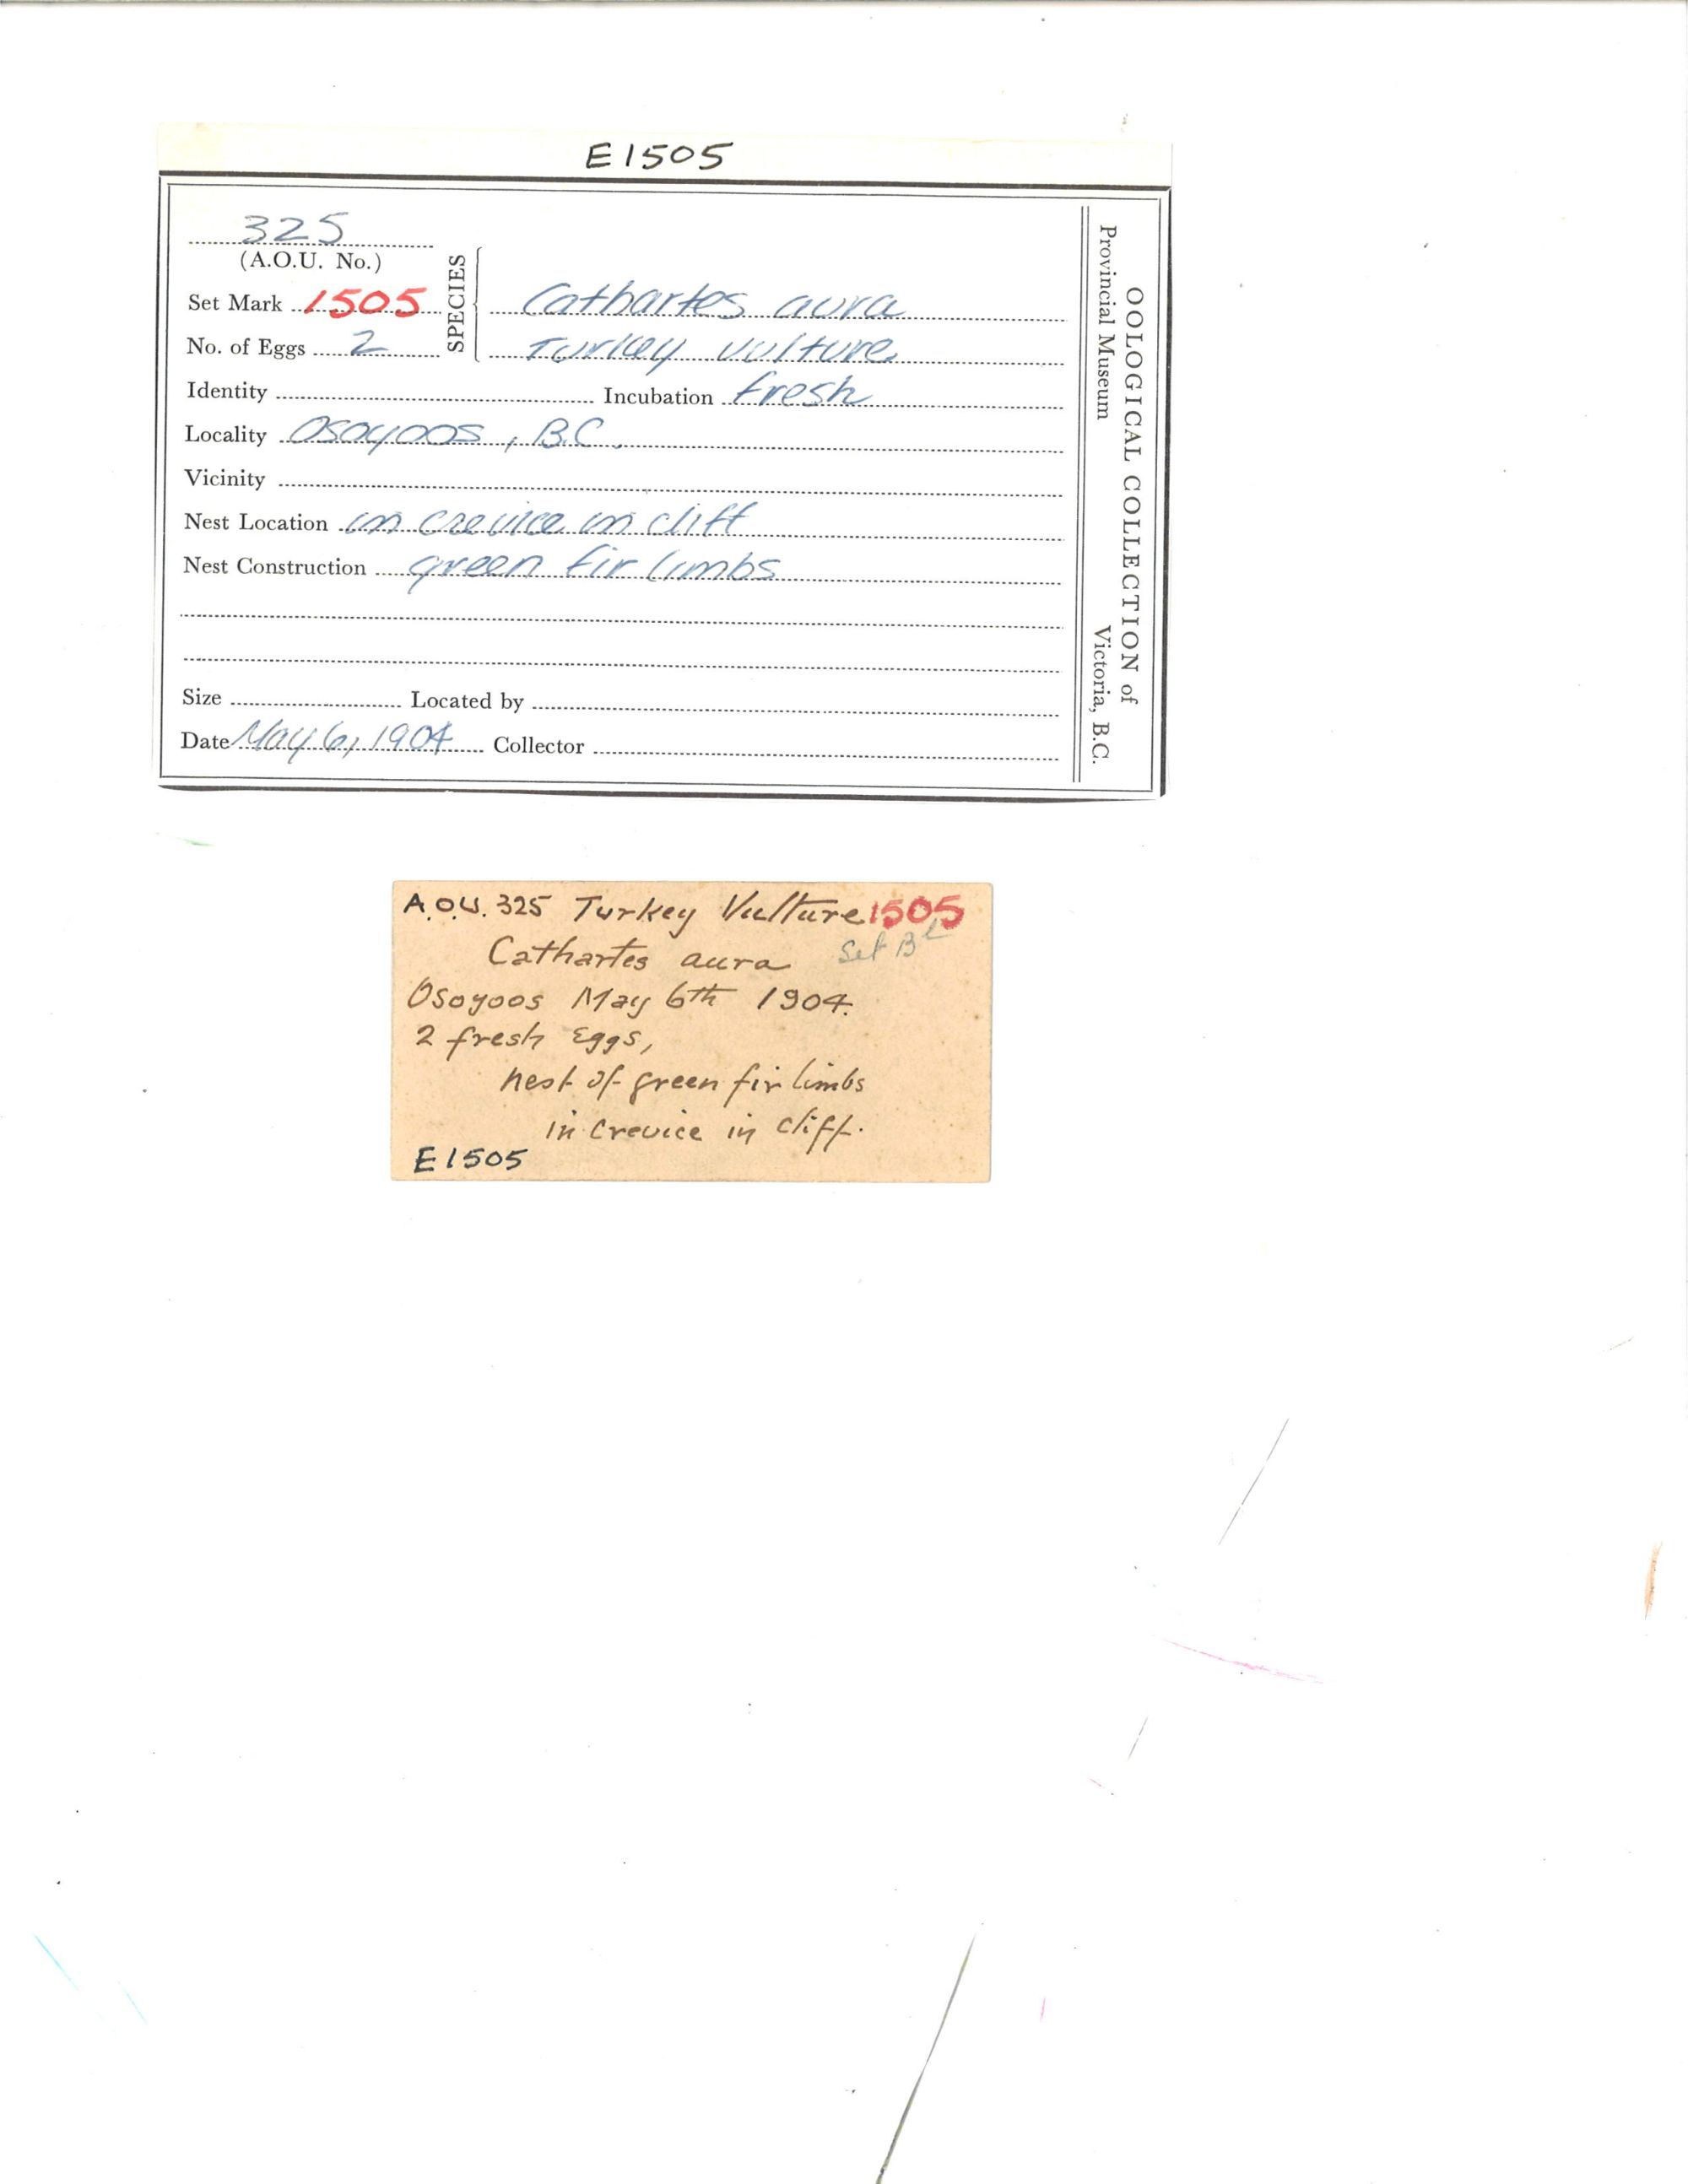 E1505
325
(A.O.U. No.)
Set Mark 1505
No. of Eggs 2
SPECIES
Cathartes aura
Turkey Vulture
Identity Incubation fresh
Locality Osoyoos, B.C.
Vicinity
Nest Location in crevice in cliff
Nest Construction green fir limbs
Size Located by
Date May 6, 1904 Collector
OOLOGICAL COLLECTION of
Provincial Museum Victoria, B.C.
A.O.U. 325 Turkey Vulture 1505
Cathartes aura Set
Osoyoos May 6th 1904.
2 fresh Eggs,
nest of green fir limbs
in crevice in cliff.
E1505